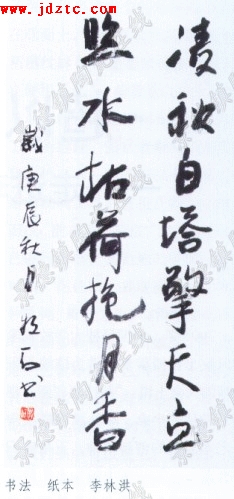 www.jdztc.com
凌秋白塔擎天立
照水枯荷抱月香
岁庚辰秋月
书法 纸本 李林洪